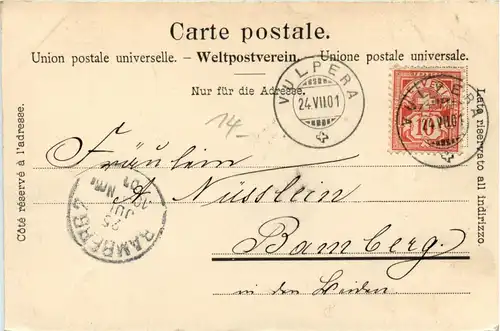 Carte postale.
Union postale universelle. – Weltpostverein. – Unione postale universale.
Nur für die Adresse.
VULPERA
24.VII.01
VULPERA
24.VII.01
10
14.-
Fräulein
A. Nüsslein
Bamberg.
in den Weiden
BAMBERG
25
JUL
Nm
01
Côté réservé à l'adresse.
Lata riservato all indirizzo.